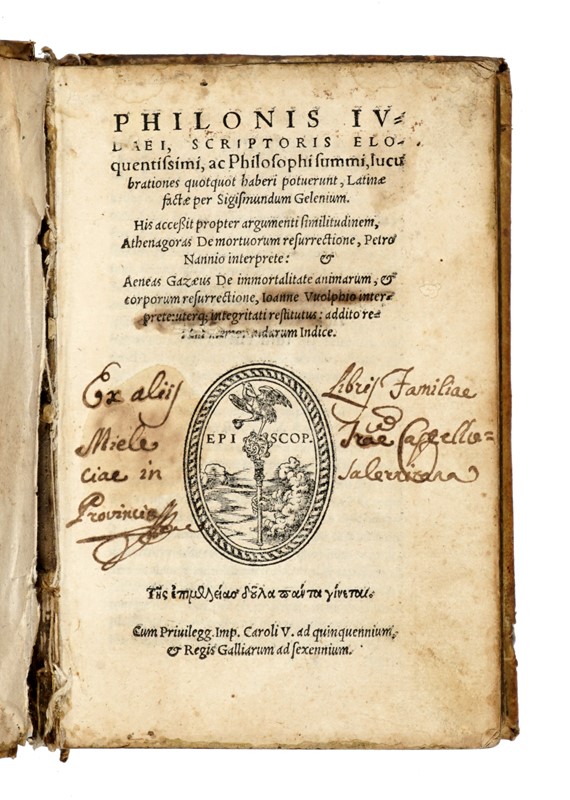 PHILONIS IV-
DAEI, SCRIPTORIS ELO-
quentissimi, ac Philosophi summi, lucu
brationes quotquot haberi potuerunt, Latinæ
factæ per Sigismundum Gelenium.
His accessit propter argumenti similitudinem,
Athenagoras De mortuorum resurrectione, Petro
Nannio interprete: &
Aeneas Gazæus De immortalitate animarum, &
corporum resurrectione, Ioanne Vuolphio inter-
prete: uterq; integritati restitutus: addito re-
Indice.
EPISCOP.
Ex aliis Libris Familiae
Miele
ciae in Salernitana
Provincia
Τῆς ἐπιμελείας δοῦλα πάντα γίνεται.
Cum Privilegg. Imp. Caroli V. ad quinquennium,
& Regis Galliarum ad sexennium.